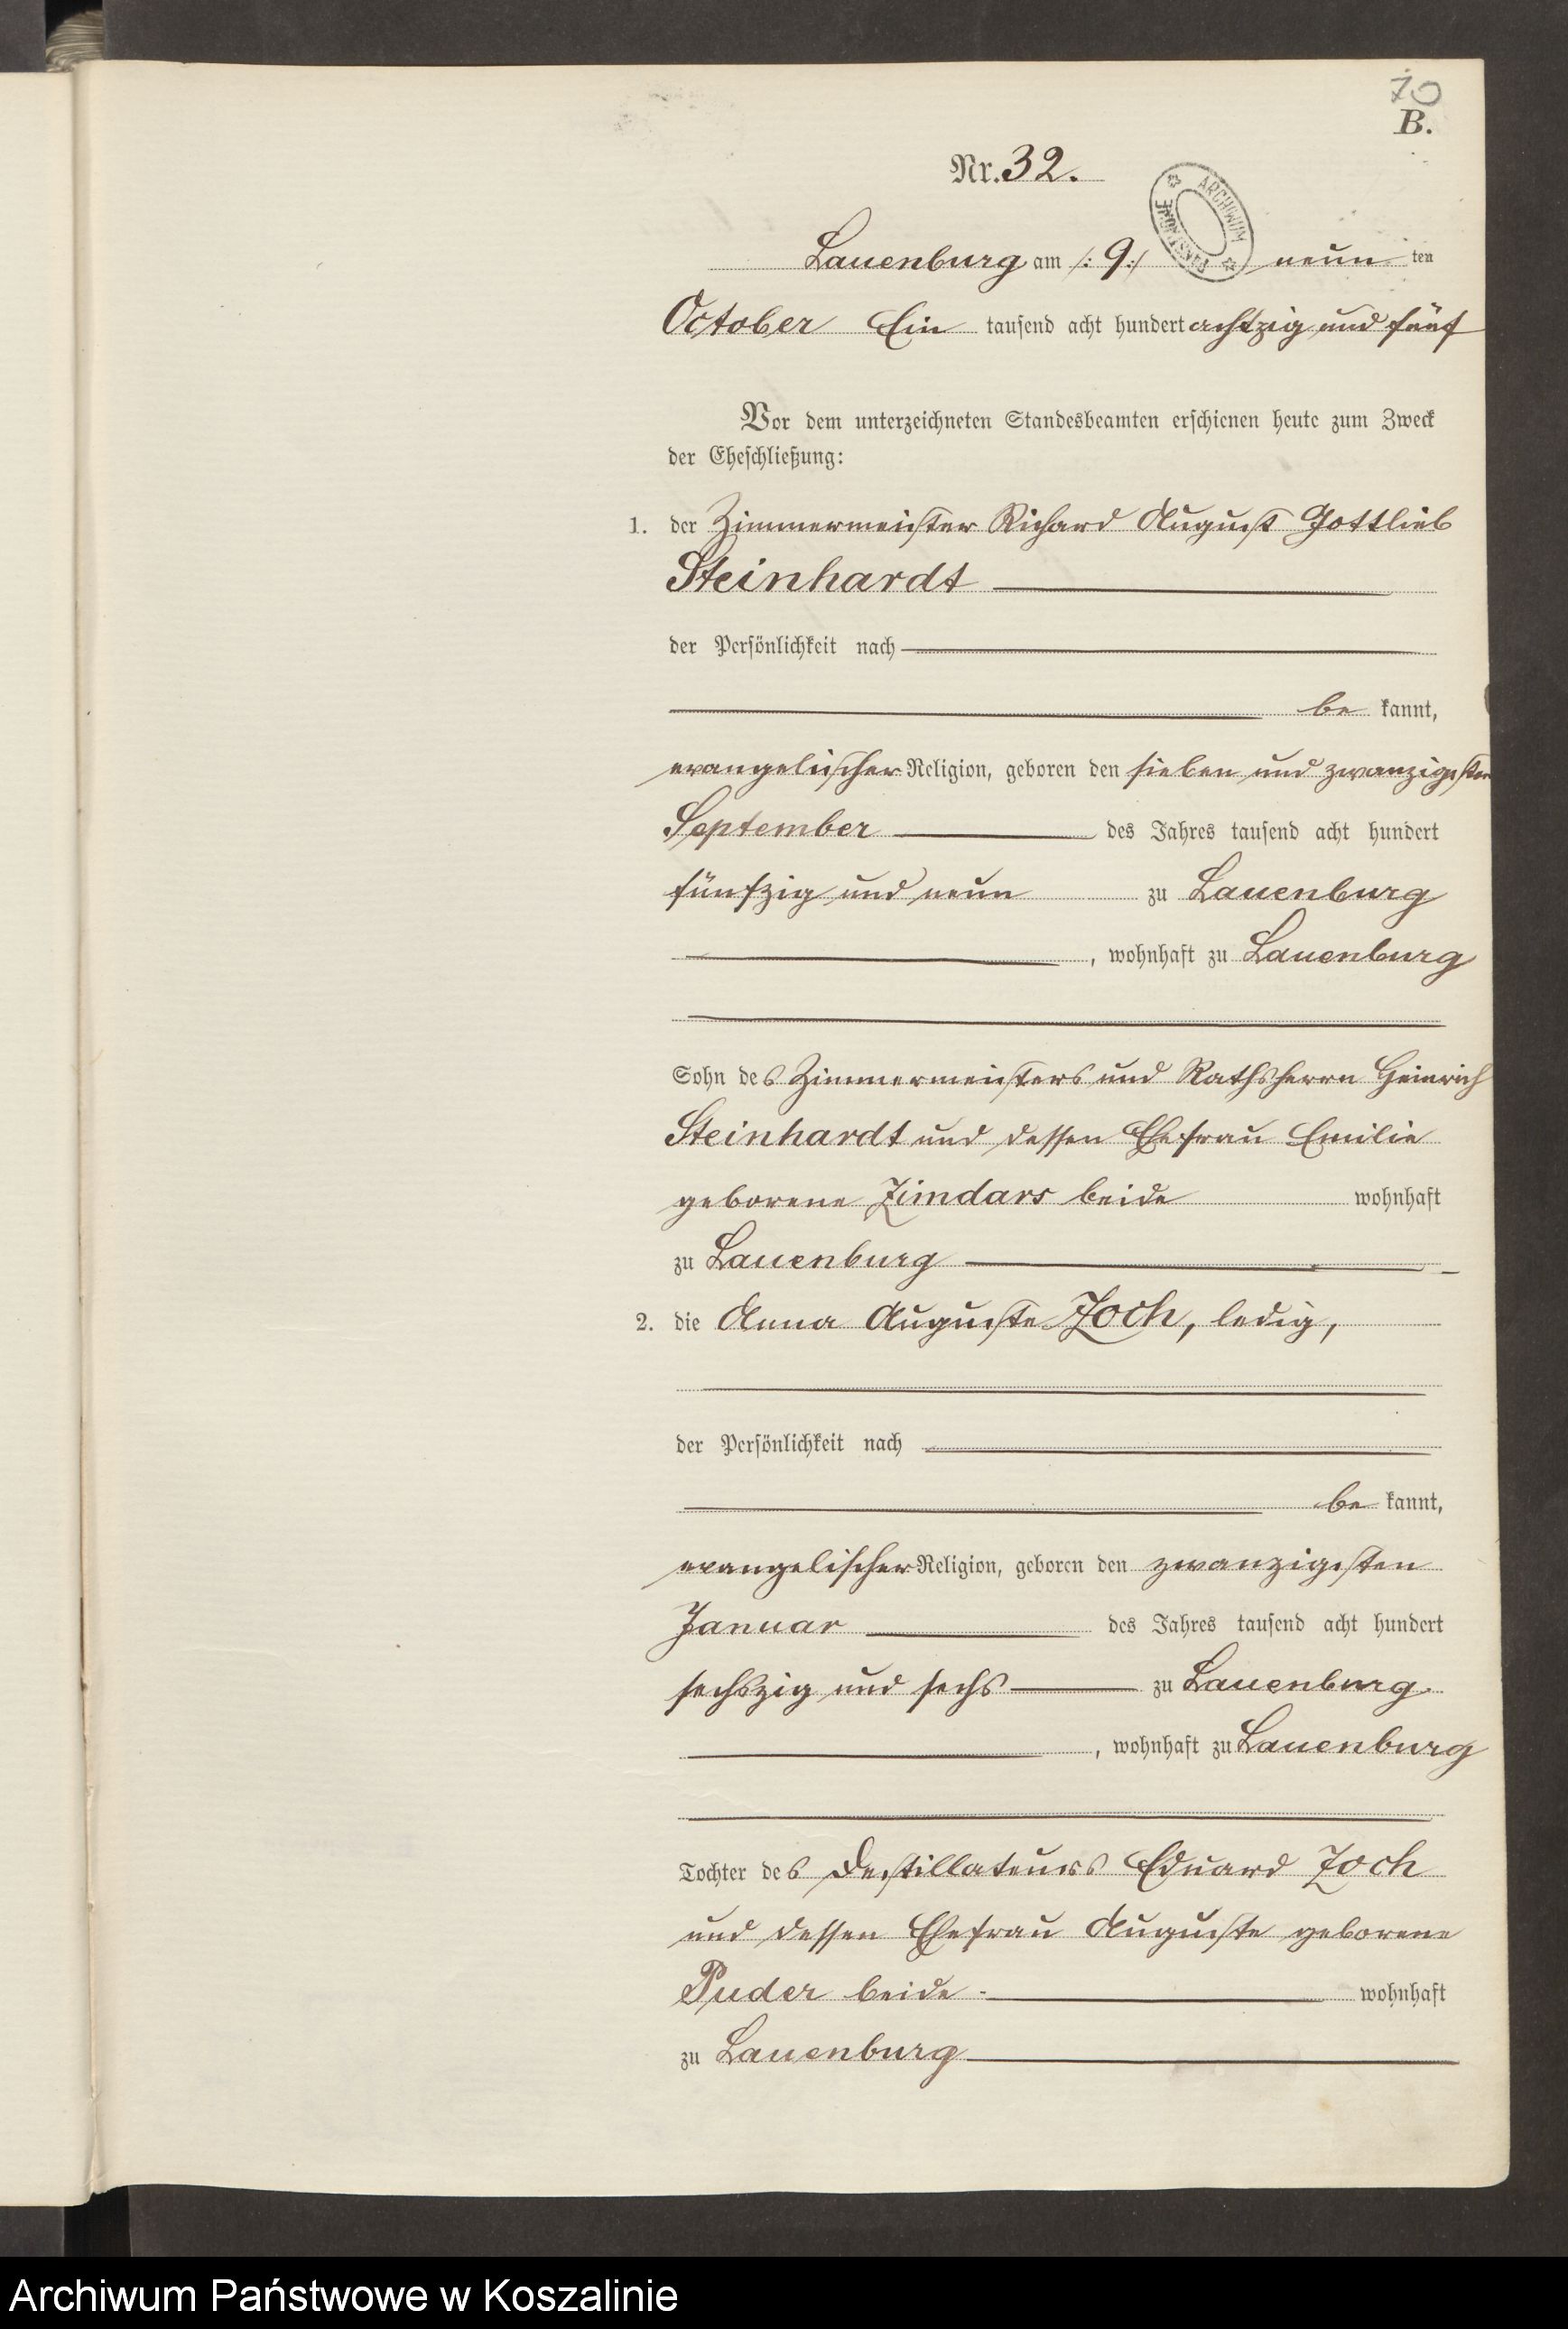 70
B.
Nr. 32.
ARCHIWUM
Lauenburg am /: 9 :/ neun ten
October Ein tausend acht hundert achtzig und fünf
Vor dem unterzeichneten Standesbeamten erschienen heute zum Zweck
der Eheschließung:
1. der Zimmermeister Richard August Gottlieb
Steinhardt
der Persönlichkeit nach
be kannt,
evangelischer Religion, geboren den sieben und zwanzigsten
September des Jahres tausend acht hundert
fünfzig und neun zu Lauenburg
, wohnhaft zu Lauenburg
Sohn des Zimmermeisters und Rathsherrn Heinrich
Steinhardt und dessen Ehefrau Emilie
geborene Zimdars beide wohnhaft
zu Lauenburg
2. die Anna Auguste Zoch, ledig,
der Persönlichkeit nach
be kannt,
evangelischer Religion, geboren den zwanzigsten
Januar des Jahres tausend acht hundert
sechszig und sechs zu Lauenburg
, wohnhaft zu Lauenburg
Tochter des Destillateurs Eduard Zoch
und dessen Ehefrau Auguste geborene
Puder beide wohnhaft
zu Lauenburg
Archiwum Państwowe w Koszalinie